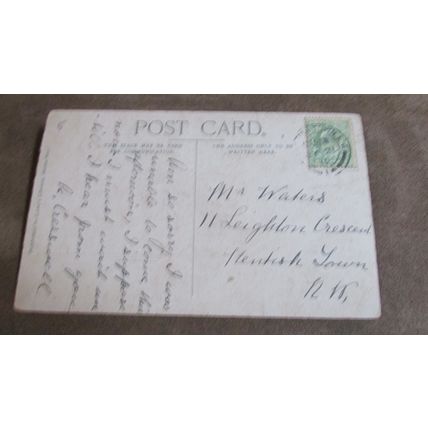 POST CARD.
THIS SPACE MAY BE USED
FOR COMMUNICATION.
THE ADDRESS ONLY TO BE
WRITTEN HERE.
Am so sorry I was
unable to come this
afternoon, I suppose
now I must wait un
till I hear from you
A. Cresswell
Mr Waters
11 Leighton Crescent
Kentish Town
N.W.